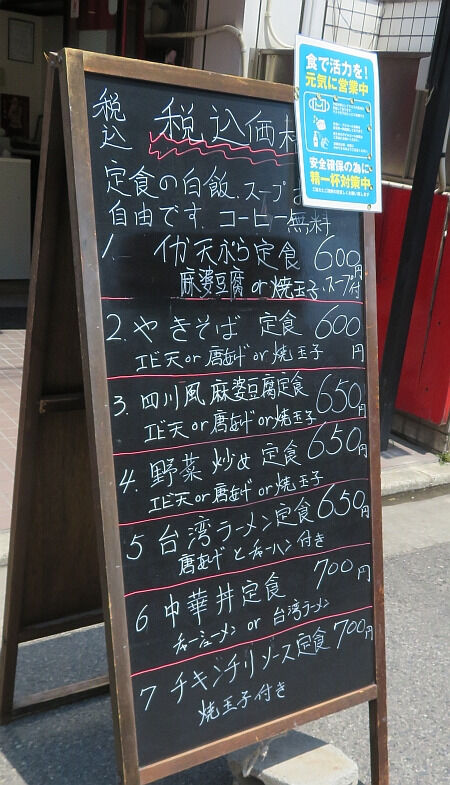 税込
税込価
定食の白飯、スープ
自由です。コーヒー無料
1. イカ天ぷら定食 600円
麻婆豆腐 or 焼玉子・スープ付
2. やきそば 定食 600円
エビ天 or 唐あげ or 焼玉子
3. 四川風麻婆豆腐定食 650円
エビ天 or 唐あげ or 焼玉子
4. 野菜炒め定食 650円
エビ天 or 唐あげ or 焼玉子
5 台湾ラーメン定食 650円
唐あげとチャーハン付き
6 中華丼定食 700円
チャーシューメン or 台湾ラーメン
7 チキンチリソース定食 700円
焼玉子付き
食で活力を!
元気に営業中
安全確保の為に
精一杯対策中。